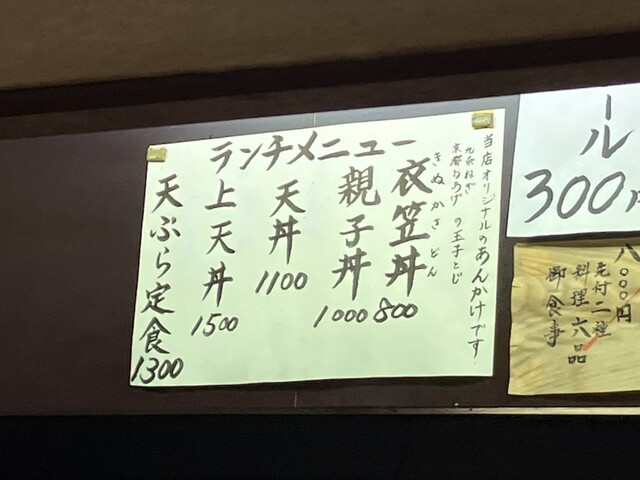 ランチメニュー
当店オリジナルのあんかけです
九条ねぎ
京都おあげ
の玉子とじ
きぬかさどん
衣笠丼
800
親子丼
1000
天丼
1100
上天丼
1500
天ぷら定食
1300
ール
300円
八〇〇〇円
先付二種
料理六品
御食事